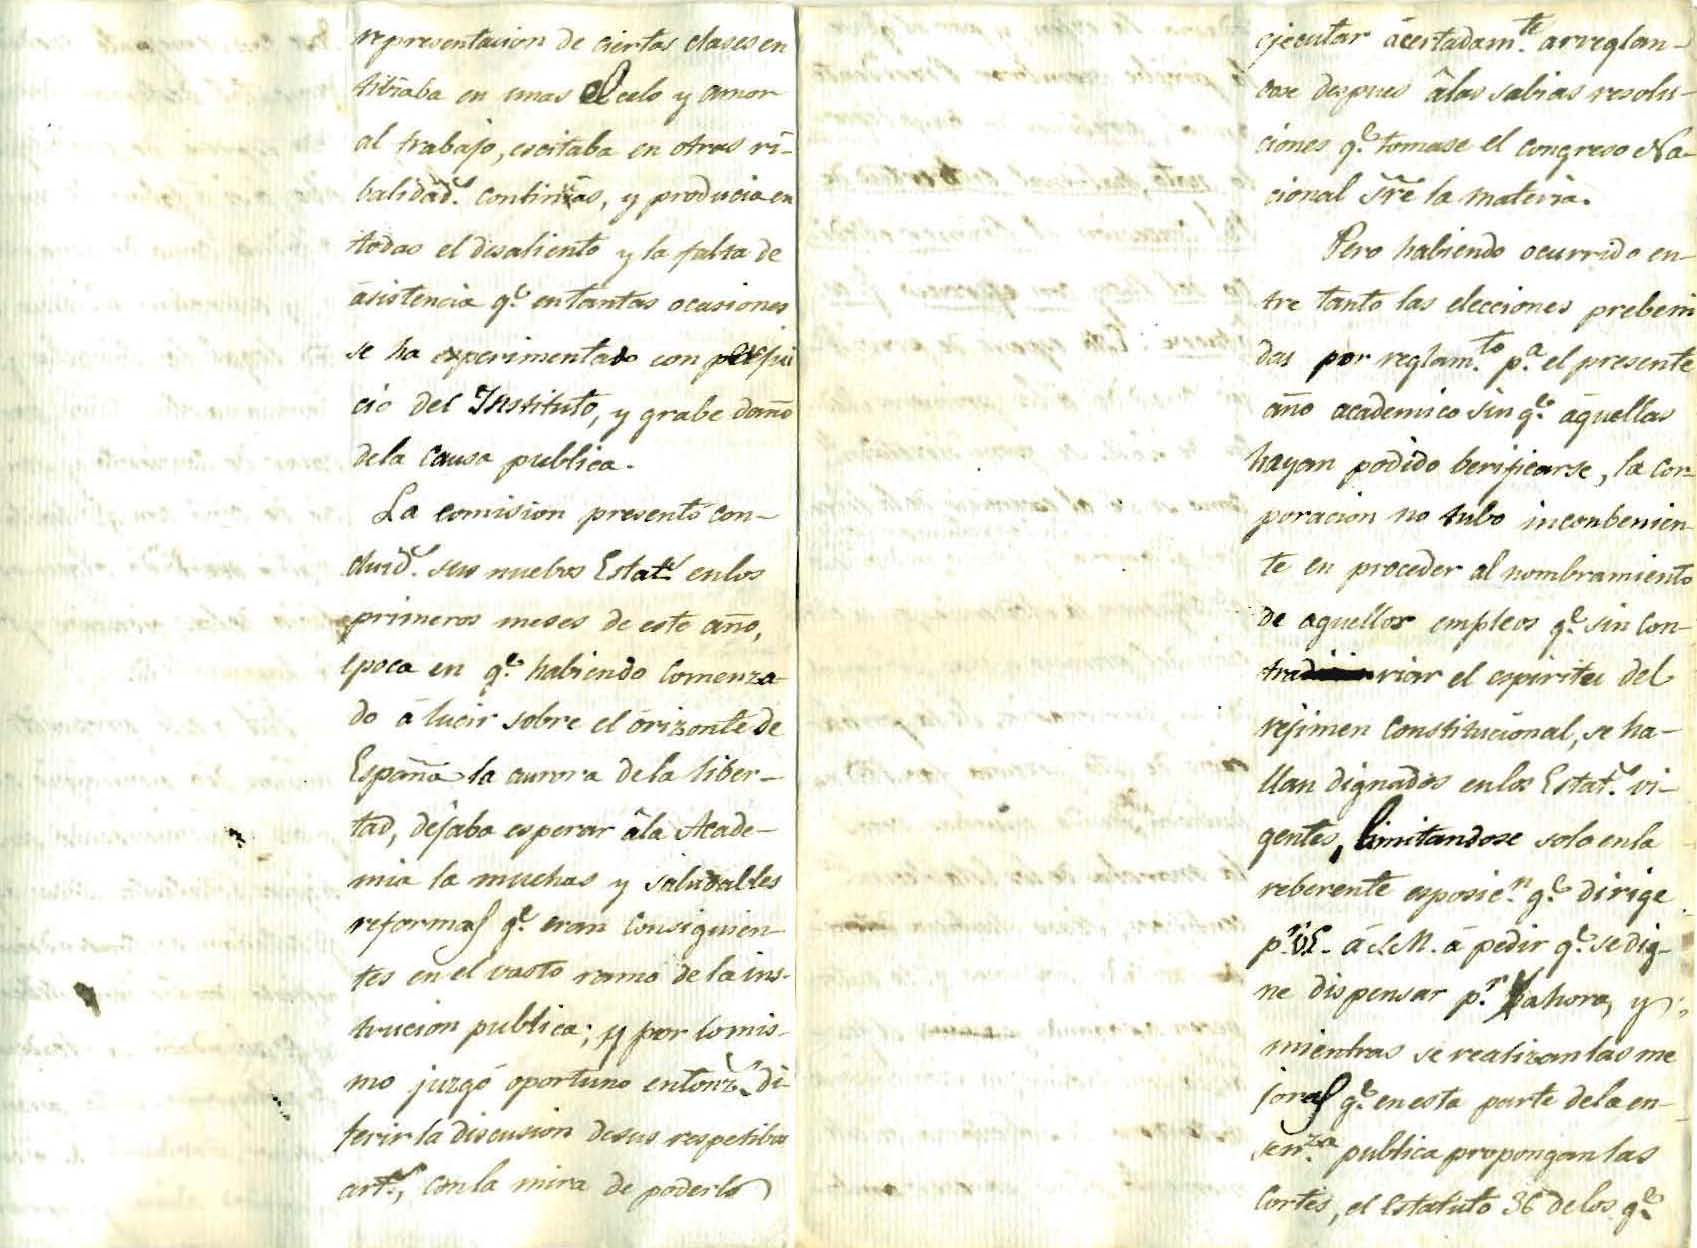 representacion de ciertas clases en
tibiaba en unas el celo y amor
al trabajo, escitaba en otras ri-
balidad.s continuas, y producia en
todas el desaliento y la falta de
asistencia q.e en tantas ocasiones
se ha experimentado con perjui
cio del Instituto, y grabe daño
dela causa publica.
La comision presentó con-
cluid.s sus nuebos Estat.s enlos
primeros meses de este año,
epoca en q.e habiendo comenza
do á lucir sobre el órizonte de
España la aurora dela liber-
tad, dejaba esperar âla Acade-
mia la muchas y saludables
reformas q.e eran consiguien-
tes en el vasto ramo de la ins-
trucion publica; y por lo mis-
mo juzgó oportuno entonz.s di-
ferir la discusion desus respetibos
art.s, con la mira de poderlo
ejecutar ácertadam.te arreglan-
dose despues âlas sabias resolu-
ciones q.e tomase el congreso Na-
cional sre la materia.
Pero habiendo ocurrido en-
tre tanto las elecciones prebeni
das por reglam.to p.a el presente
año academico sin q.e áquellas
hayan podido berificarse, la cor-
poracion no tubo inconbenien-
te en proceder al nombramiento
de aquellos empleos q.e sin con-
trariar el espiritu del
réjimen constitucional, se ha-
llan dignados enlos Estat.s vi-
gentes, limitandose solo enla
reberente esposic.n q.e dirige
p.r VE. á S.M. á pedir q.e se dig-
ne dispensar p.r ahora, y
mientras se realizan las me
joras q.e en esta parte dela en-
señ.za publica propongan las
Cortes, el Estatuto 36 delos q.e